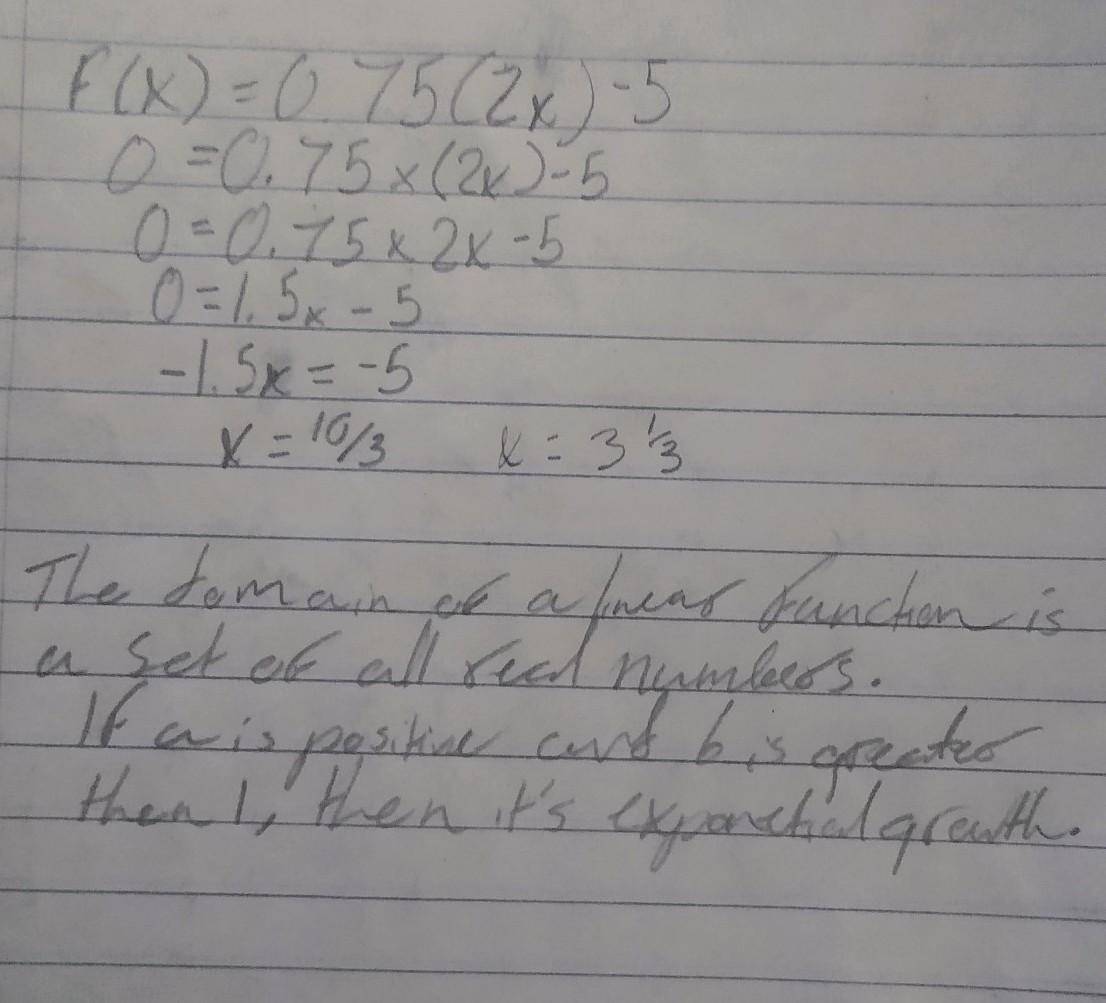 F(x) = 0.75(2x) - 5
0 = 0.75 × (2x) - 5
0 = 0.75 × 2x - 5
0 = 1.5x - 5
-1.5x = -5
x = 10/3 x = 3 1/3
The domain of a linear function is
a set of all real numbers.
If a is positive and b is greater
then 1, then it's exponetial growth.